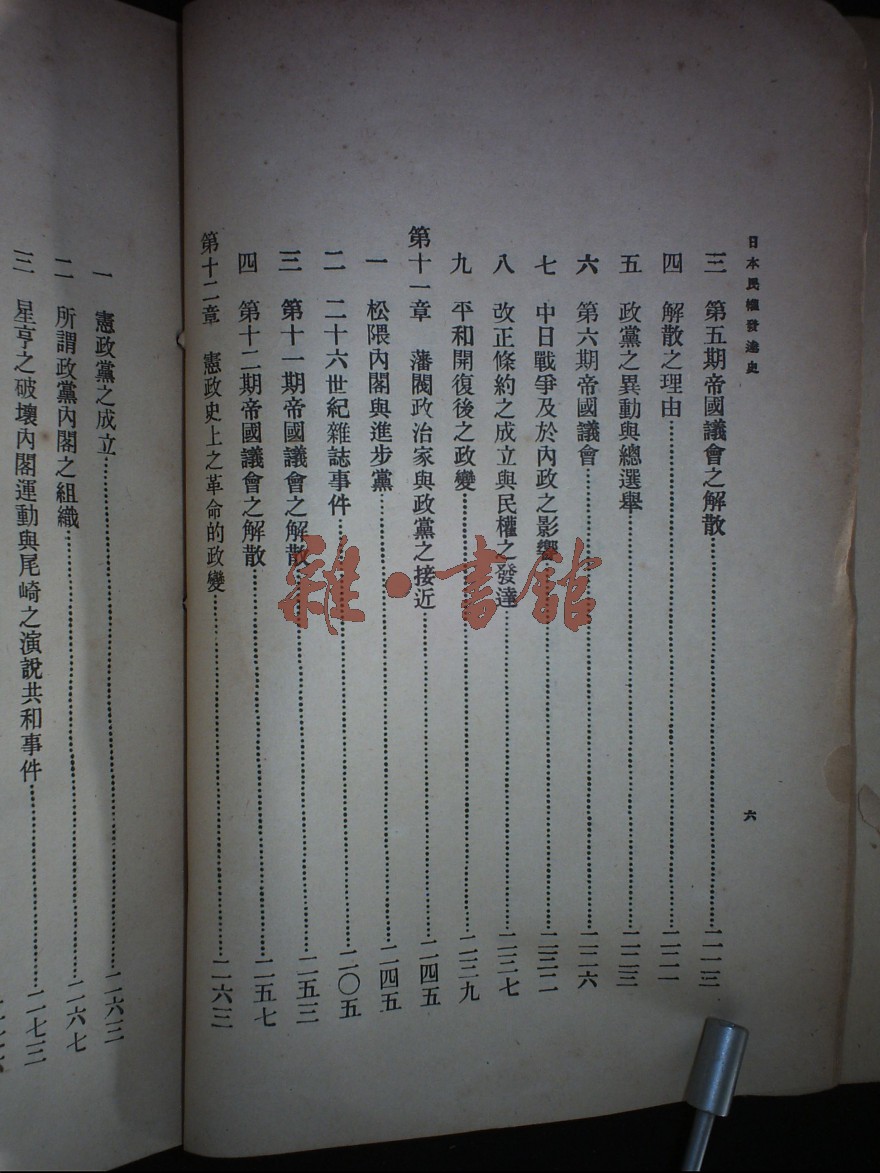 日本民權發達史
六
三 第五期帝國議會之解散……二一三
四 解散之理由……二二一
五 政黨之異動與總選舉……二二三
六 第六期帝國議會……二二六
七 中日戰爭及於內政之影響……二三二
八 改正條約之成立與民權之發達……二三七
九 平和開復後之政變……二三九
第十一章 藩閥政治家與政黨之接近……二四五
一 松隈內閣與進步黨……二四五
二 二十六世紀雜誌事件……二〇五
三 第十一期帝國議會之解散……二五三
四 第十二期帝國議會之解散……二五七
第十二章 憲政史上之革命的政變……二六三
一 憲政黨之成立……二六三
二 所謂政黨內閣之組織……二六七
三 星亨之破壞內閣運動與尾崎之演說共和事件……二七三
雜·書館